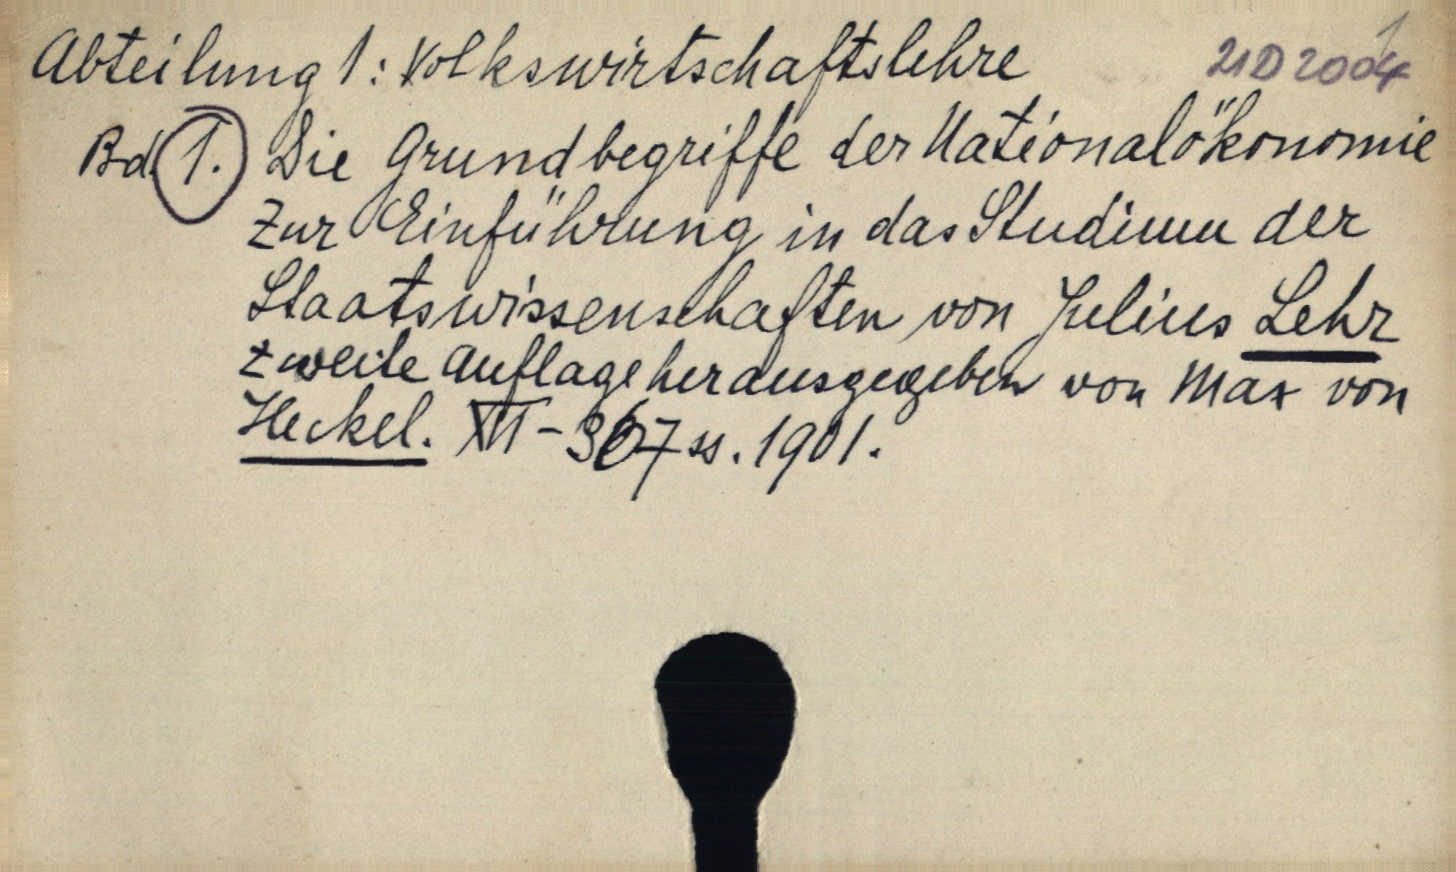 Abteilung 1: Volkswirtschaftslehre 21D2004 1
Bd. 1. Die Grundbegriffe der Nationalökonomie
Zur Einführung in das Studium der
Staatswissenschaften von Julius Lehr
zweite Auflage herausgegeben von Max von
Heckel. XII-367 ss. 1901.